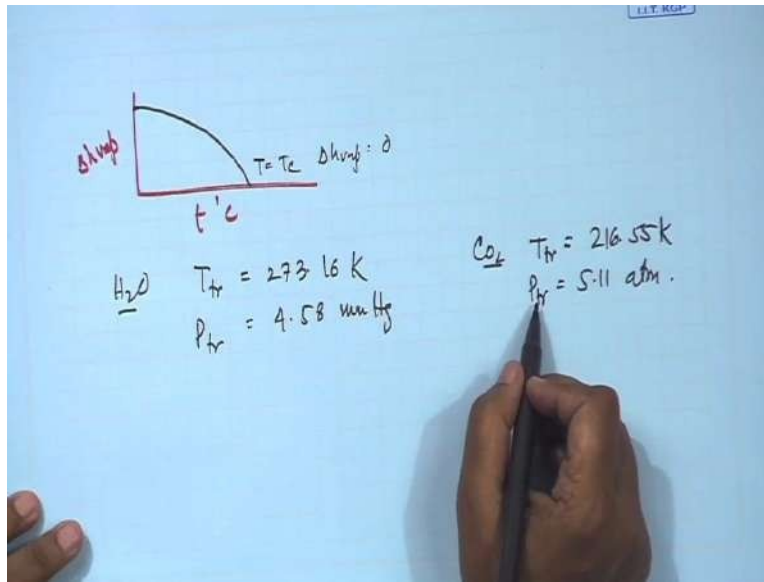 I.I.T. KGP
Δhvap
T = Tc Δhvap = 0
t°c
H2O Ttr = 273.16 K
Ptr = 4.58 mmHg
CO2 Ttr = 216.55 K
Ptr = 5.11 atm.